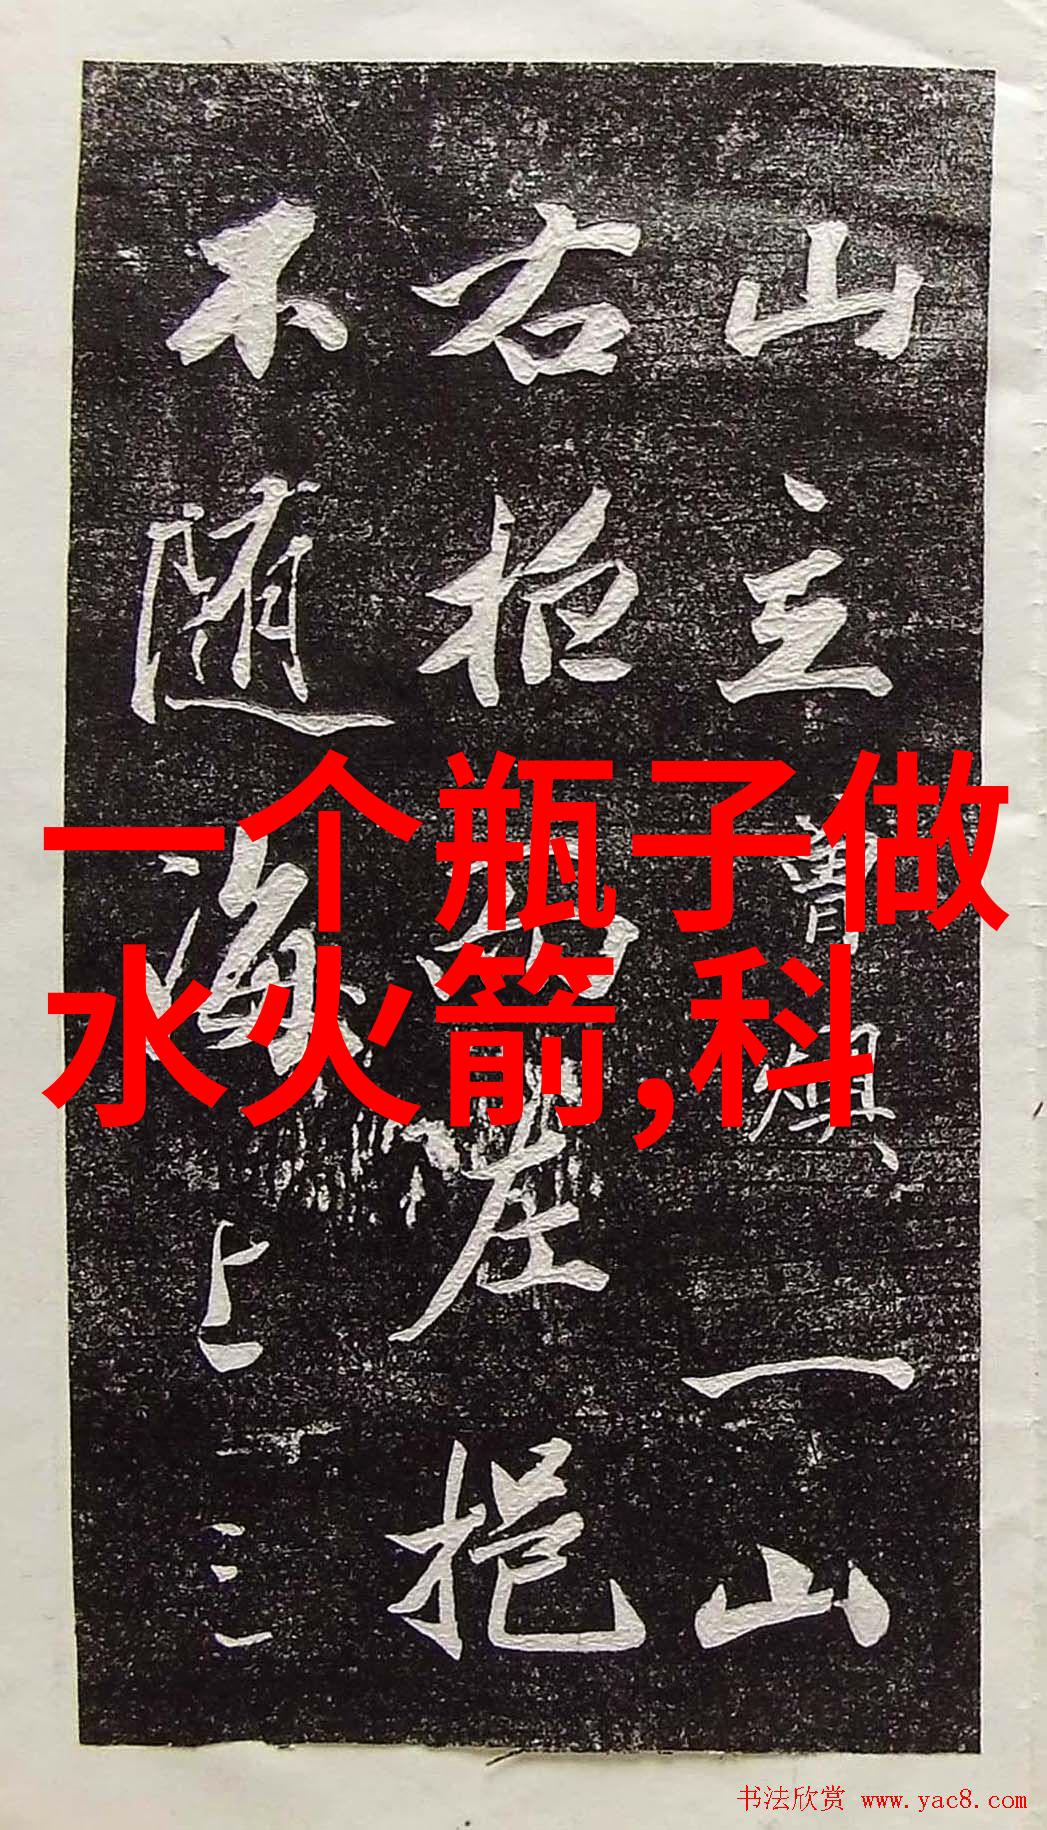 一个瓶子做
水火箭,科
山主曾燠、一山
右左挹
不随海上三
书法欣赏 www.yac8.com